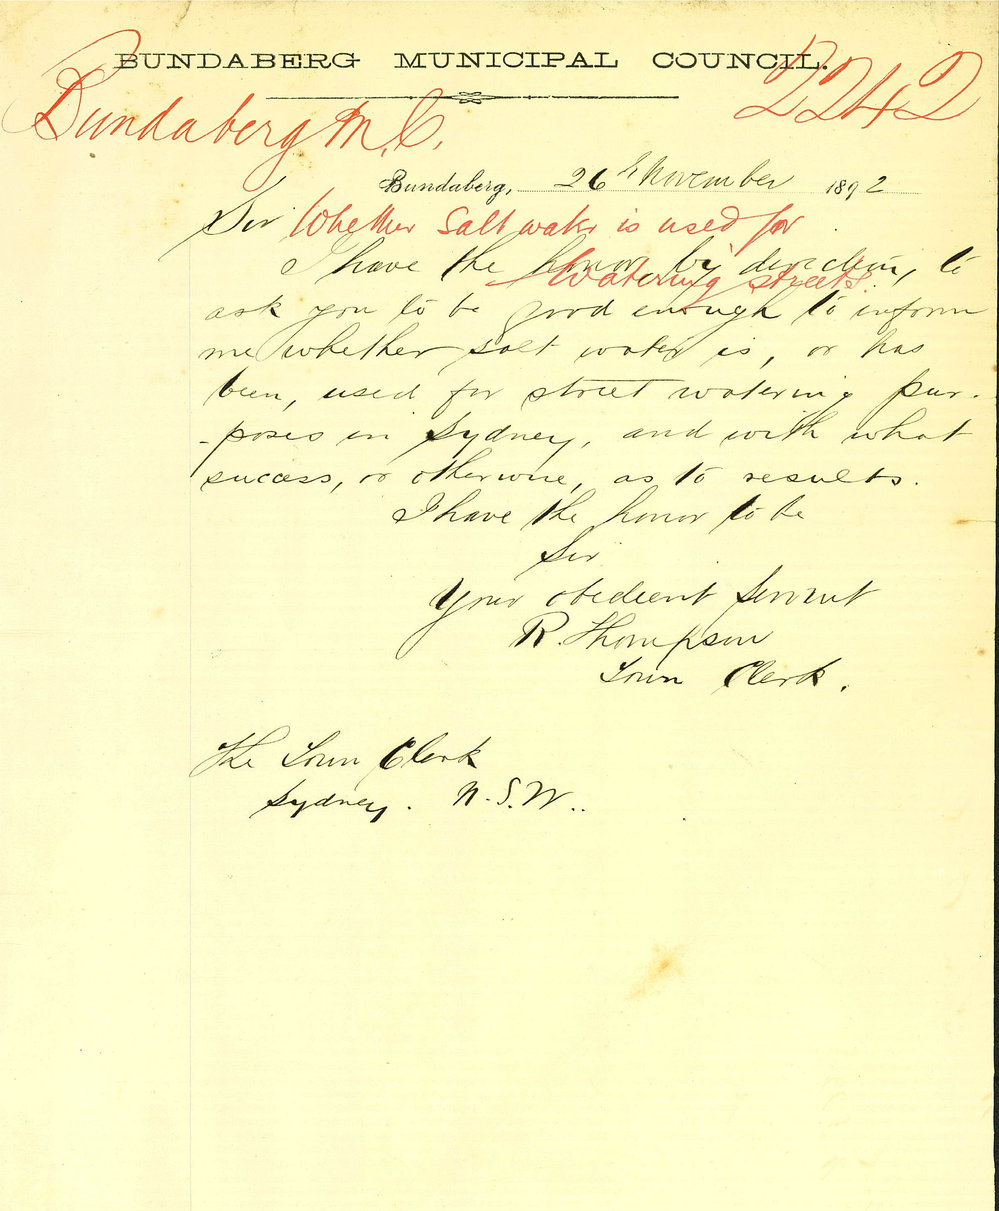 BUNDABERG MUNICIPAL COUNCIL.
Bundaberg M.C.
2242
Bundaberg, 26th November 1892
Sir
Whether Salt water is used for
Watering streets.
I have the honor, by direction, to
ask you to be good enough to inform
me whether salt water is, or has
been, used for street watering pur-
-poses in Sydney, and with what
success, or otherwise, as to results.
I have the honor to be
Sir
Your obedient Servant
R. Thompson
Town Clerk.
The Town Clerk
Sydney. N.S.W..